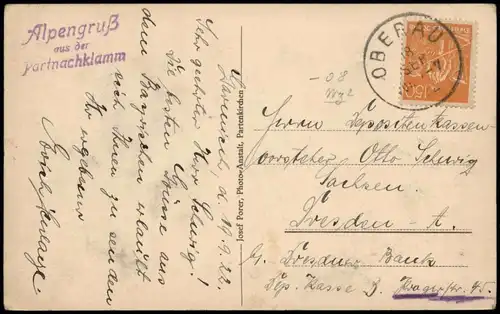 Alpengruß
aus der
Partnachklamm
Garmisch, d. 19.9.22.
Sehr geehrter Herr Schwig!
Die besten Grüsse aus
dem Bayrischen erlaubt
sich Ihnen zu senden
Ihr ergebener
Josef Porer, Photo-Anstalt, Partenkirchen
OBERAU
150
Herrn Depositenkassen
vorsteher Otto Schwig
Sachsen.
Dresden A.
Dresdner Bank
Dep. Kasse